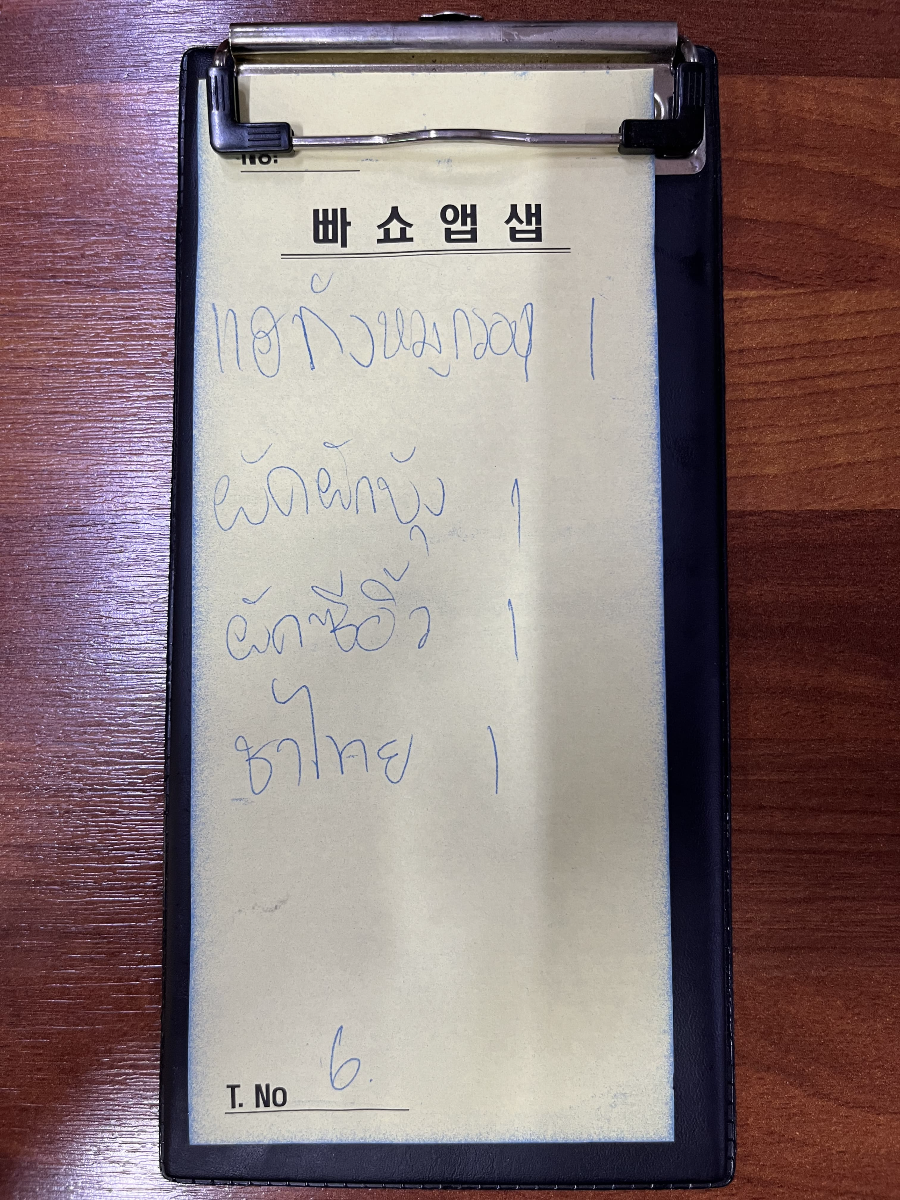 No:
빠쇼앱샙
หมูกรอบ 1
ผัดผักบุ้ง 1
ผัดซีอิ๊ว 1
ชาไทย 1
T. No 6.